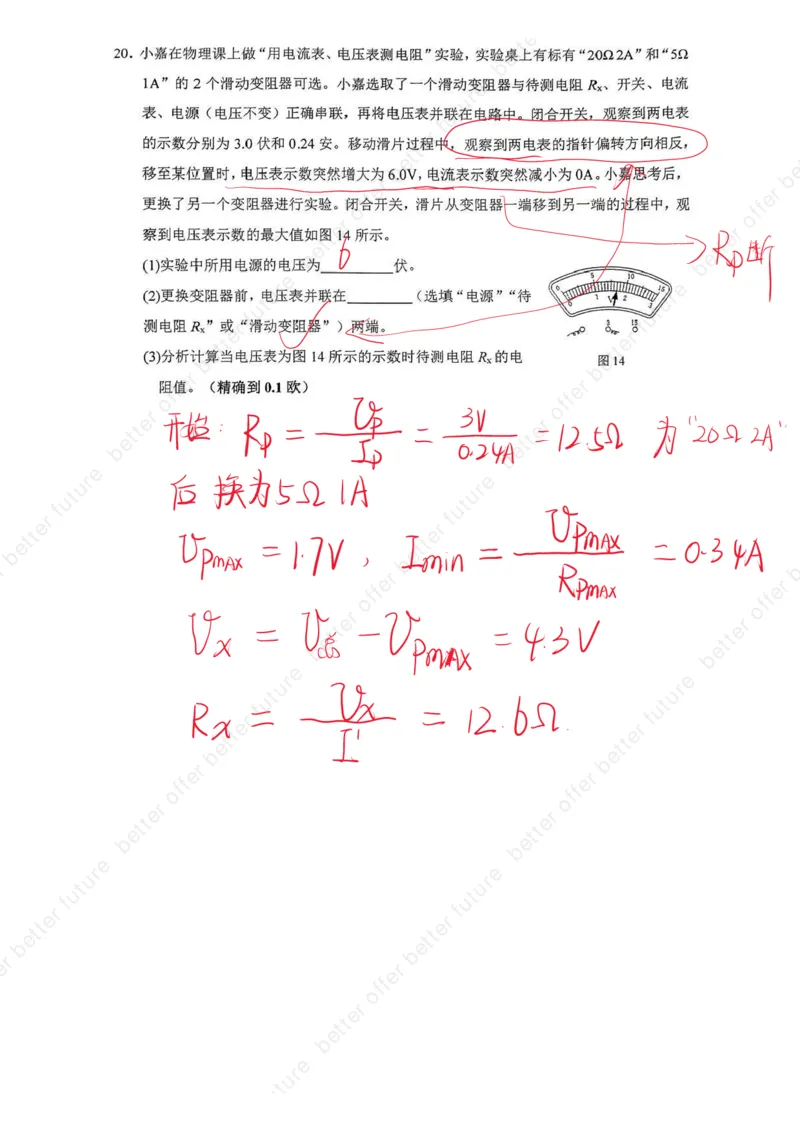 20. 小嘉在物理课上做“用电流表、电压表测电阻”实验，实验桌上有标有“20Ω 2A”和“5Ω
1A”的 2 个滑动变阻器可选。小嘉选取了一个滑动变阻器与待测电阻 Rx、开关、电流
表、电源（电压不变）正确串联，再将电压表并联在电路中。闭合开关，观察到两电表
的示数分别为 3.0 伏和 0.24 安。移动滑片过程中，观察到两电表的指针偏转方向相反，
移至某位置时，电压表示数突然增大为 6.0V，电流表示数突然减小为 0A。小嘉思考后，
更换了另一个变阻器进行实验。闭合开关，滑片从变阻器一端移到另一端的过程中，观
察到电压表示数的最大值如图 14 所示。
Rp断
(1)实验中所用电源的电压为 6 伏。
(2)更换变阻器前，电压表并联在__________（选填“电源”“待
测电阻 Rx”或“滑动变阻器”）两端。
(3)分析计算当电压表为图 14 所示的示数时待测电阻 Rx 的电
阻值。（精确到 0.1 欧）
0 5 10 15
0 1 2 3
V
3 15
图 14
开始: Rp = Up/Ip = 3V/0.24A = 12.5Ω 为“20Ω 2A”
后 换为5Ω 1A
UPmAx = 1.7V , Imin = UPmAx/RPmAx = 0.34A
Ux = U总 - UPmAx = 4.3V
Rx = Ux/I' = 12.6Ω.
better offer better future